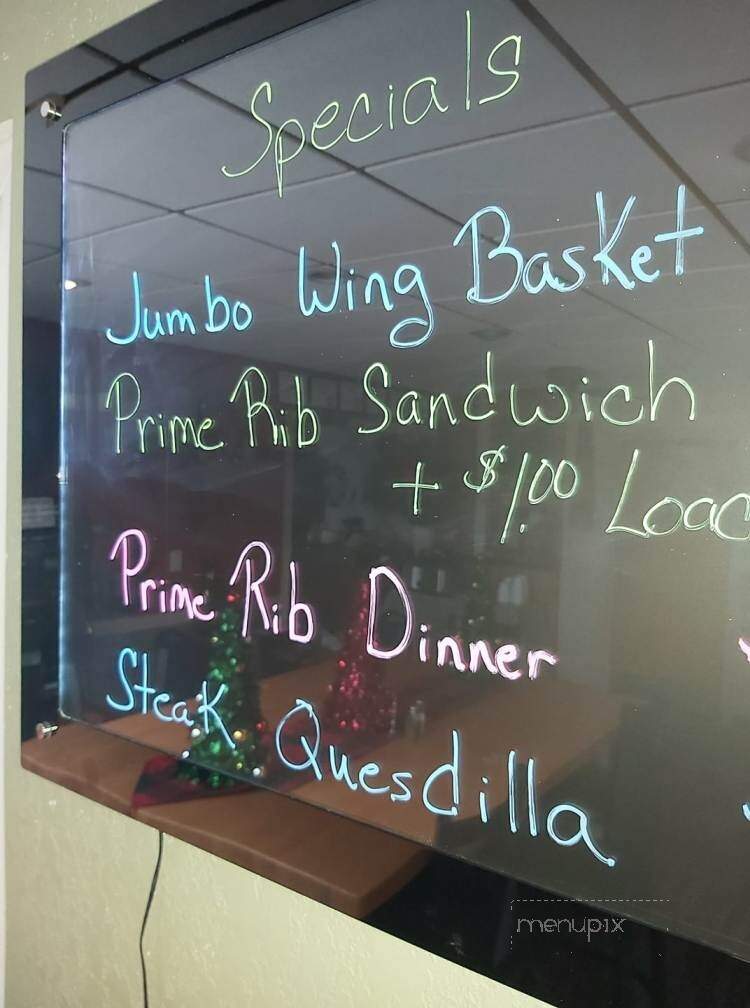 Specials
Jumbo Wing Basket
Prime Rib Sandwich
+ $1.00
Prime Rib Dinner
Steak Quesdilla
menupix